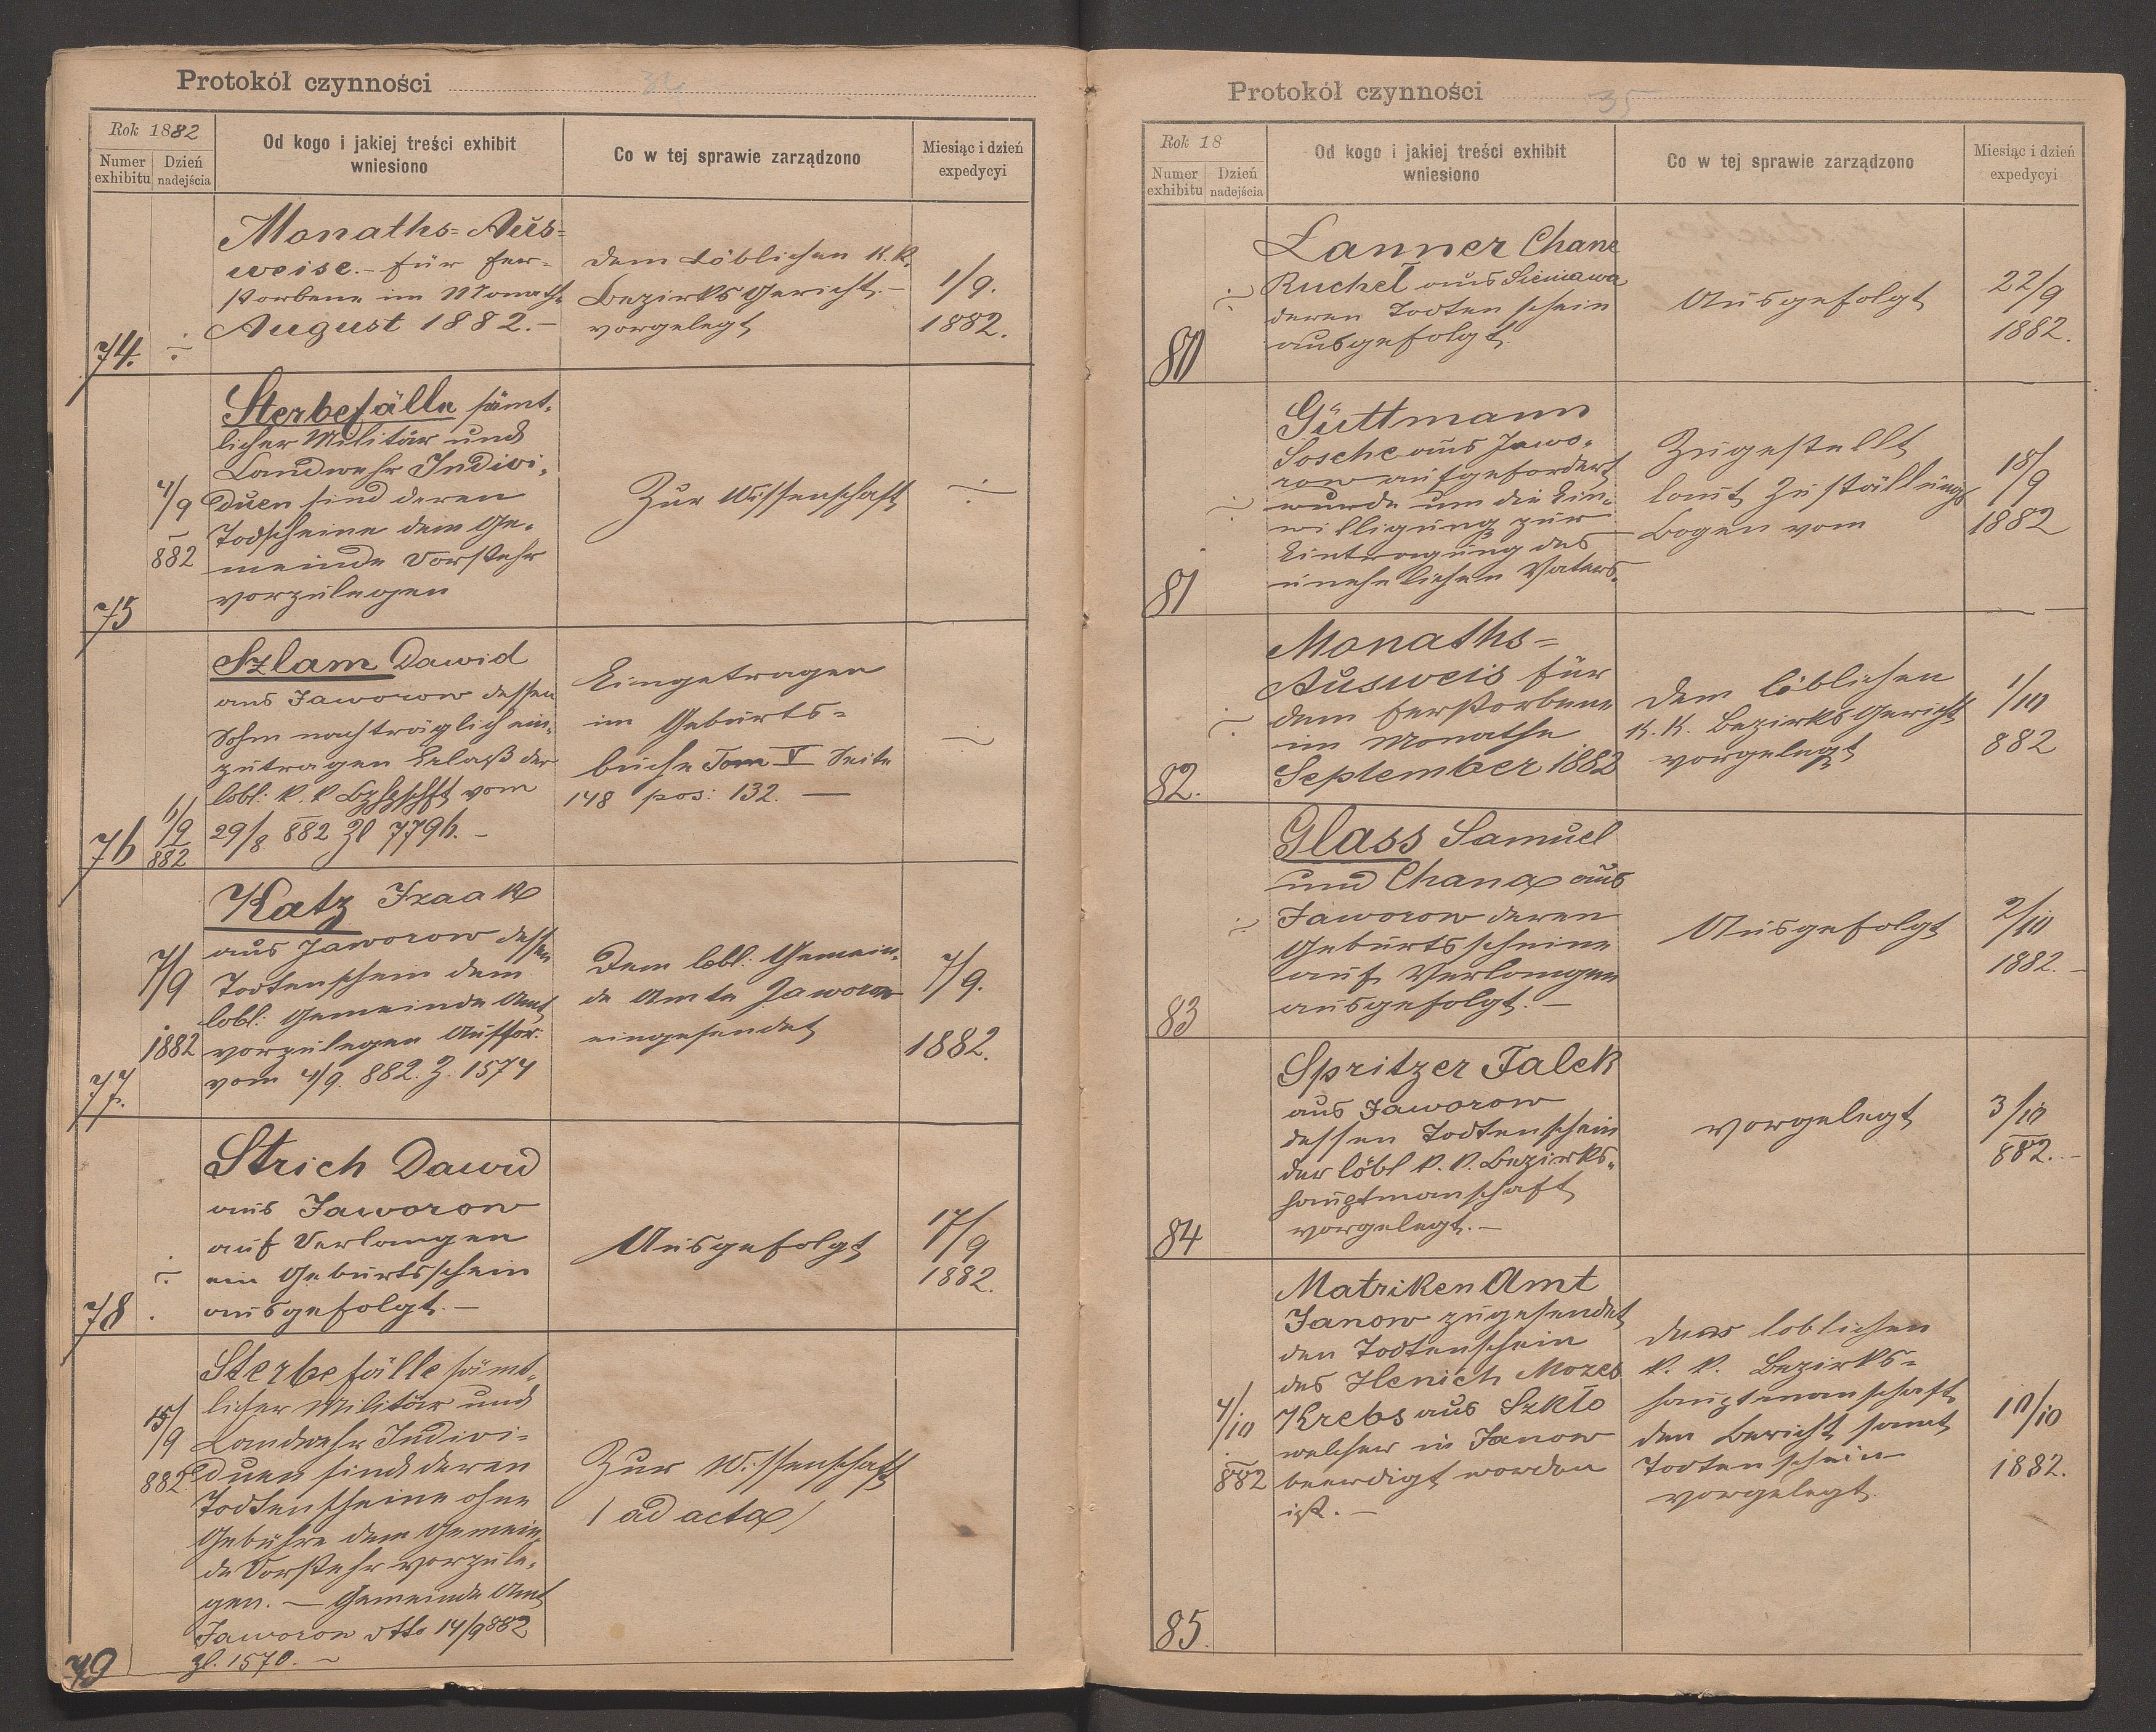 Protokół czynności
34
Rok 1882
Numer exhibitu
Dzień nadejścia
Od kogo i jakiej treści exhibit
wniesiono
Co w tej sprawie zarządzono
Miesiąc i dzień
expedycyi
74.
Monaths=Aus=
weise.- für Ver=
storbene im Monath
August 1882.-
dem Löblichen K.K.
Bezirks Gericht.-
vorgelegt
1/9.
1882.
75
4/9
882
Sterbefälle sämt-
licher Militär und
Landwehr Indivi-
duen sind deren
Todscheine dem Ge-
meinde Vorsteher
vorzulegen
Zur Wissenschaft
76
6/9
882
Szlam Dawid
aus Jaworow dessen
Sohn nachträglich ein-
zutragen Erlaß der
löbl: k.k Bzhptschft vom
29/8 882 Zl 7796.-
Eingetragen
im Geburts=
buche Tom V Seite
148 pos: 132. —
77.
7/9
1882
Katz Izaak
aus Jaworow dessen
Todtenschein dem
löbl: Gemeinde Amt
vorzulegen Auffor:
vom 4/9. 882. Z. 1574
Dem löbl: Gemein-
de Amte Jaworow
eingesendet
7/9.
1882.
78
Strich Dawid
aus Jaworow
auf Verlangen
ein Geburtsschein
ausgefolgt.—
Ausgefolgt
17/9
1882.
79
15/9
882
Sterbefälle sämt-
licher Militär und
Landwehr Indivi-
duen sind deren
Todtenscheine ohne
Gebühre dem Gemein-
de Vorsteher vorzule-
gen. — Gemeinde Amt
Jaworow dtto 14/9 882
zl. 1570. —
Zur Wissenschaft
/ ad acta /
Protokół czynności
35
Rok 18
Numer exhibitu
Dzień nadejścia
Od kogo i jakiej treści exhibit
wniesiono
Co w tej sprawie zarządzono
Miesiąc i dzień
expedycyi
80
Lanner Chane
Ruchel aus Sieniawa
deren Todtenschein
ausgefolgt
Ausgefolgt
22/9
1882.
81
Güttmann
Sosche aus Jawo-
row aufgefordert
wurde um die Ein-
willigung zur
Eintragung des
unehelichen Vaters.
Zugestellt
laut Zuställungs
Bogen vom
18/9
1882
82.
Monaths=
Ausweis für
dem Verstorbene
im Monathe
September 1882
dem löblichen
K.K. Bezirks Gericht
vorgelegt
1/10
882
83
Glass Samuel
und Chana aus
Jaworow deren
Geburtsscheine
auf Verlangen
ausgefolgt.—
Ausgefolgt
2/10
1882.-
84
Spritzer Falek
aus Jaworow
dessen Todtenschein
der löbl k.k. Bezirks-
hauptmanschaft
vorgelegt.—
vorgelegt
3/10
882.-
85.
4/10
882
Matriken Amt
Janow zugesendet
den Todtenschein
des Henich Mozes
Krebs aus Szkło
welcher in Janow
beerdigt worden
ist.—
der loblichen
k.k. Bezirks=
hauptmanschaft
den Bericht samt
Todtenschein
vorgelegt.
10/10
1882.